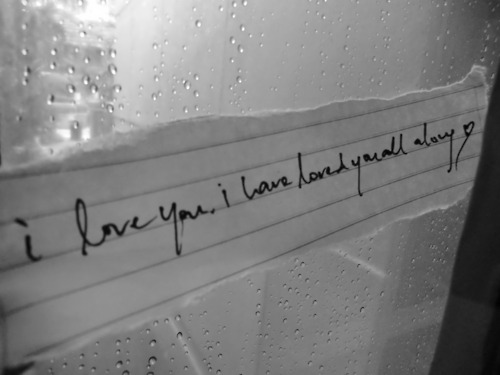 i love you. i have loved you all along ♡